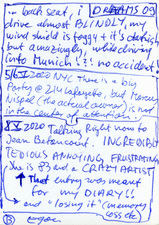 — back seat, i DREAMS 09
drive almost BLINDLY, my
wind shield is foggy + it's darkish
but amazingly while driving
(into Munich!?! no accident!
5/ I 2020 NYC There is a big
Party @ Zilu Lafayette, but Marcus
Nispel (the actual owner) is not
in the center of attention.
8 I 2020 Talking Right now to
Jean Betancourt. INCREDIBLY
TEDIOUS ANNOYING FRUSTRATING
- She is 83 and a CRAZY ARTIST
↑ That entry was meant
for my DIARY!!
and "losing it" (memory
loss etc
B